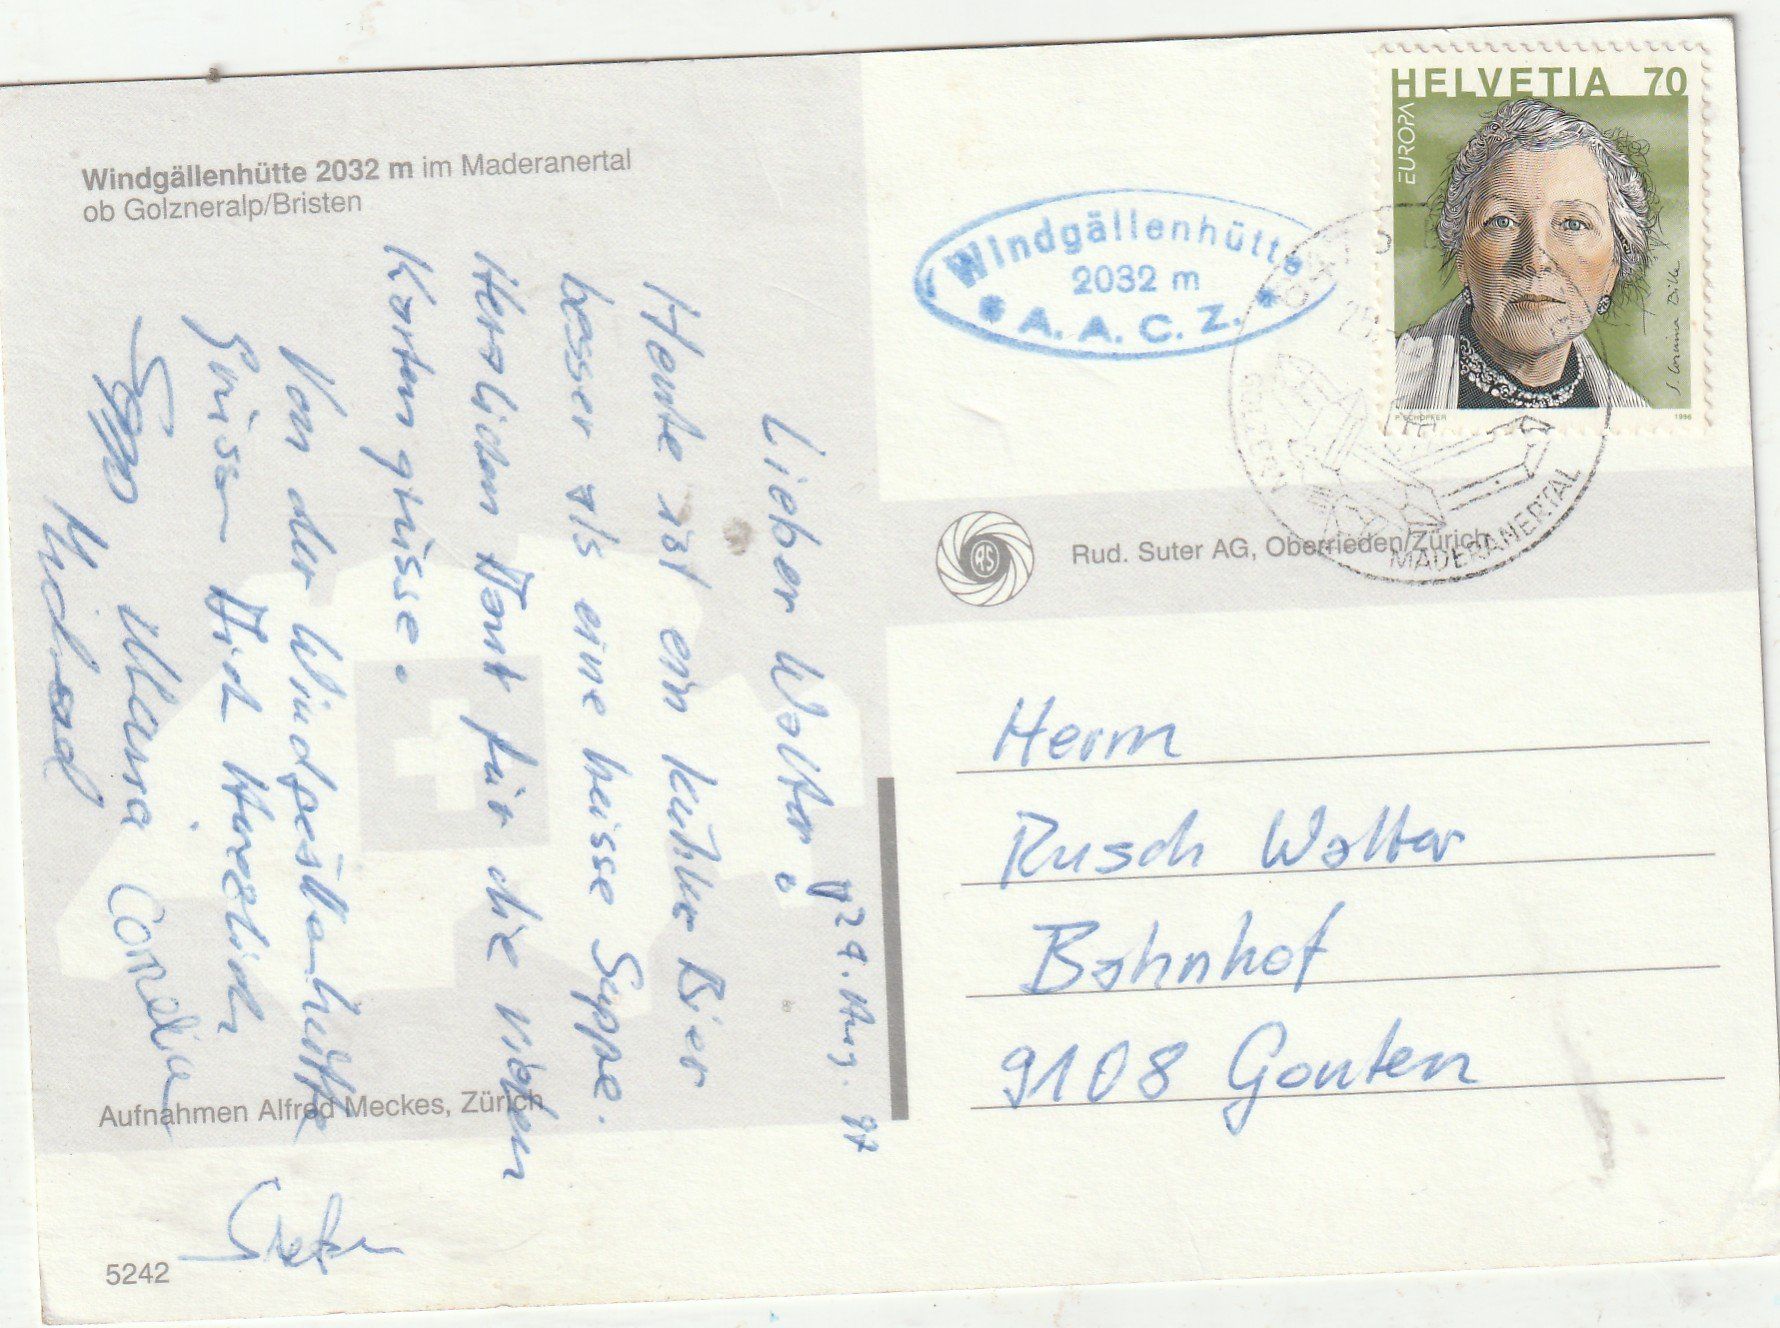 Windgällenhütte 2032 m im Maderanertal
ob Golzneralp/Bristen
24. Aug. 97
Lieber Walter!
Heute ist ein kühles Bier
besser als eine heisse Suppe.
Herzlichen Dank für die vielen
Kartengrüsse.
Von der Windgällenhütte
Grüssen Dich herzlich
Sepp Maria Cornelia
Michael
Stefan
Aufnahmen Alfred Meckes, Zürich
5242
Windgällenhütte
2032 m
A. A. C. Z.
HELVETIA 70
EUROPA
S. Corinna Bille
P. SCHOPFER 1996
GOLZERN
MADERANERTAL
RS
Rud. Suter AG, Oberrieden/Zürich
Herrn
Rusch Walter
Bahnhof
9108 Gonten